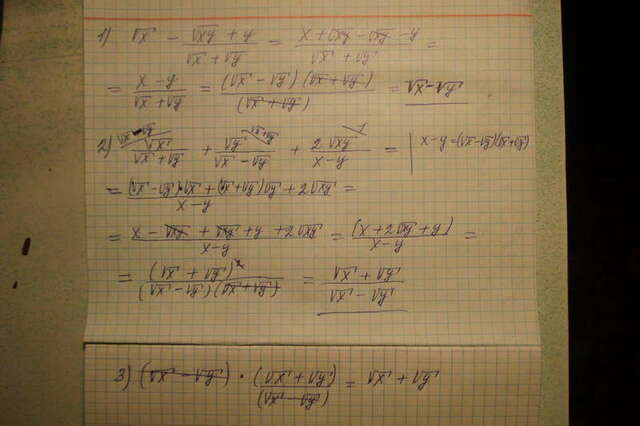 1) √x - (√xy + y)/(√x + √y) = (x + √xy - √xy - y)/(√x + √y) =
= (x - y)/(√x + √y) = ((√x - √y)(√x + √y))/(√x + √y) = √x - √y
2) √x/(√x + √y) + √y/(√x - √y) + 2√xy/(x - y) = | x - y = (√x - √y)(√x + √y)
= ((√x - √y)·√x + (√x + √y)√y + 2√xy)/(x - y) =
= (x - √xy + √xy + y + 2√xy)/(x - y) = (x + 2√xy + y)/(x - y) =
= (√x + √y)²/((√x - √y)(√x + √y)) = (√x + √y)/(√x - √y)
3) (√x - √y) · (√x + √y)/(√x - √y) = √x + √y